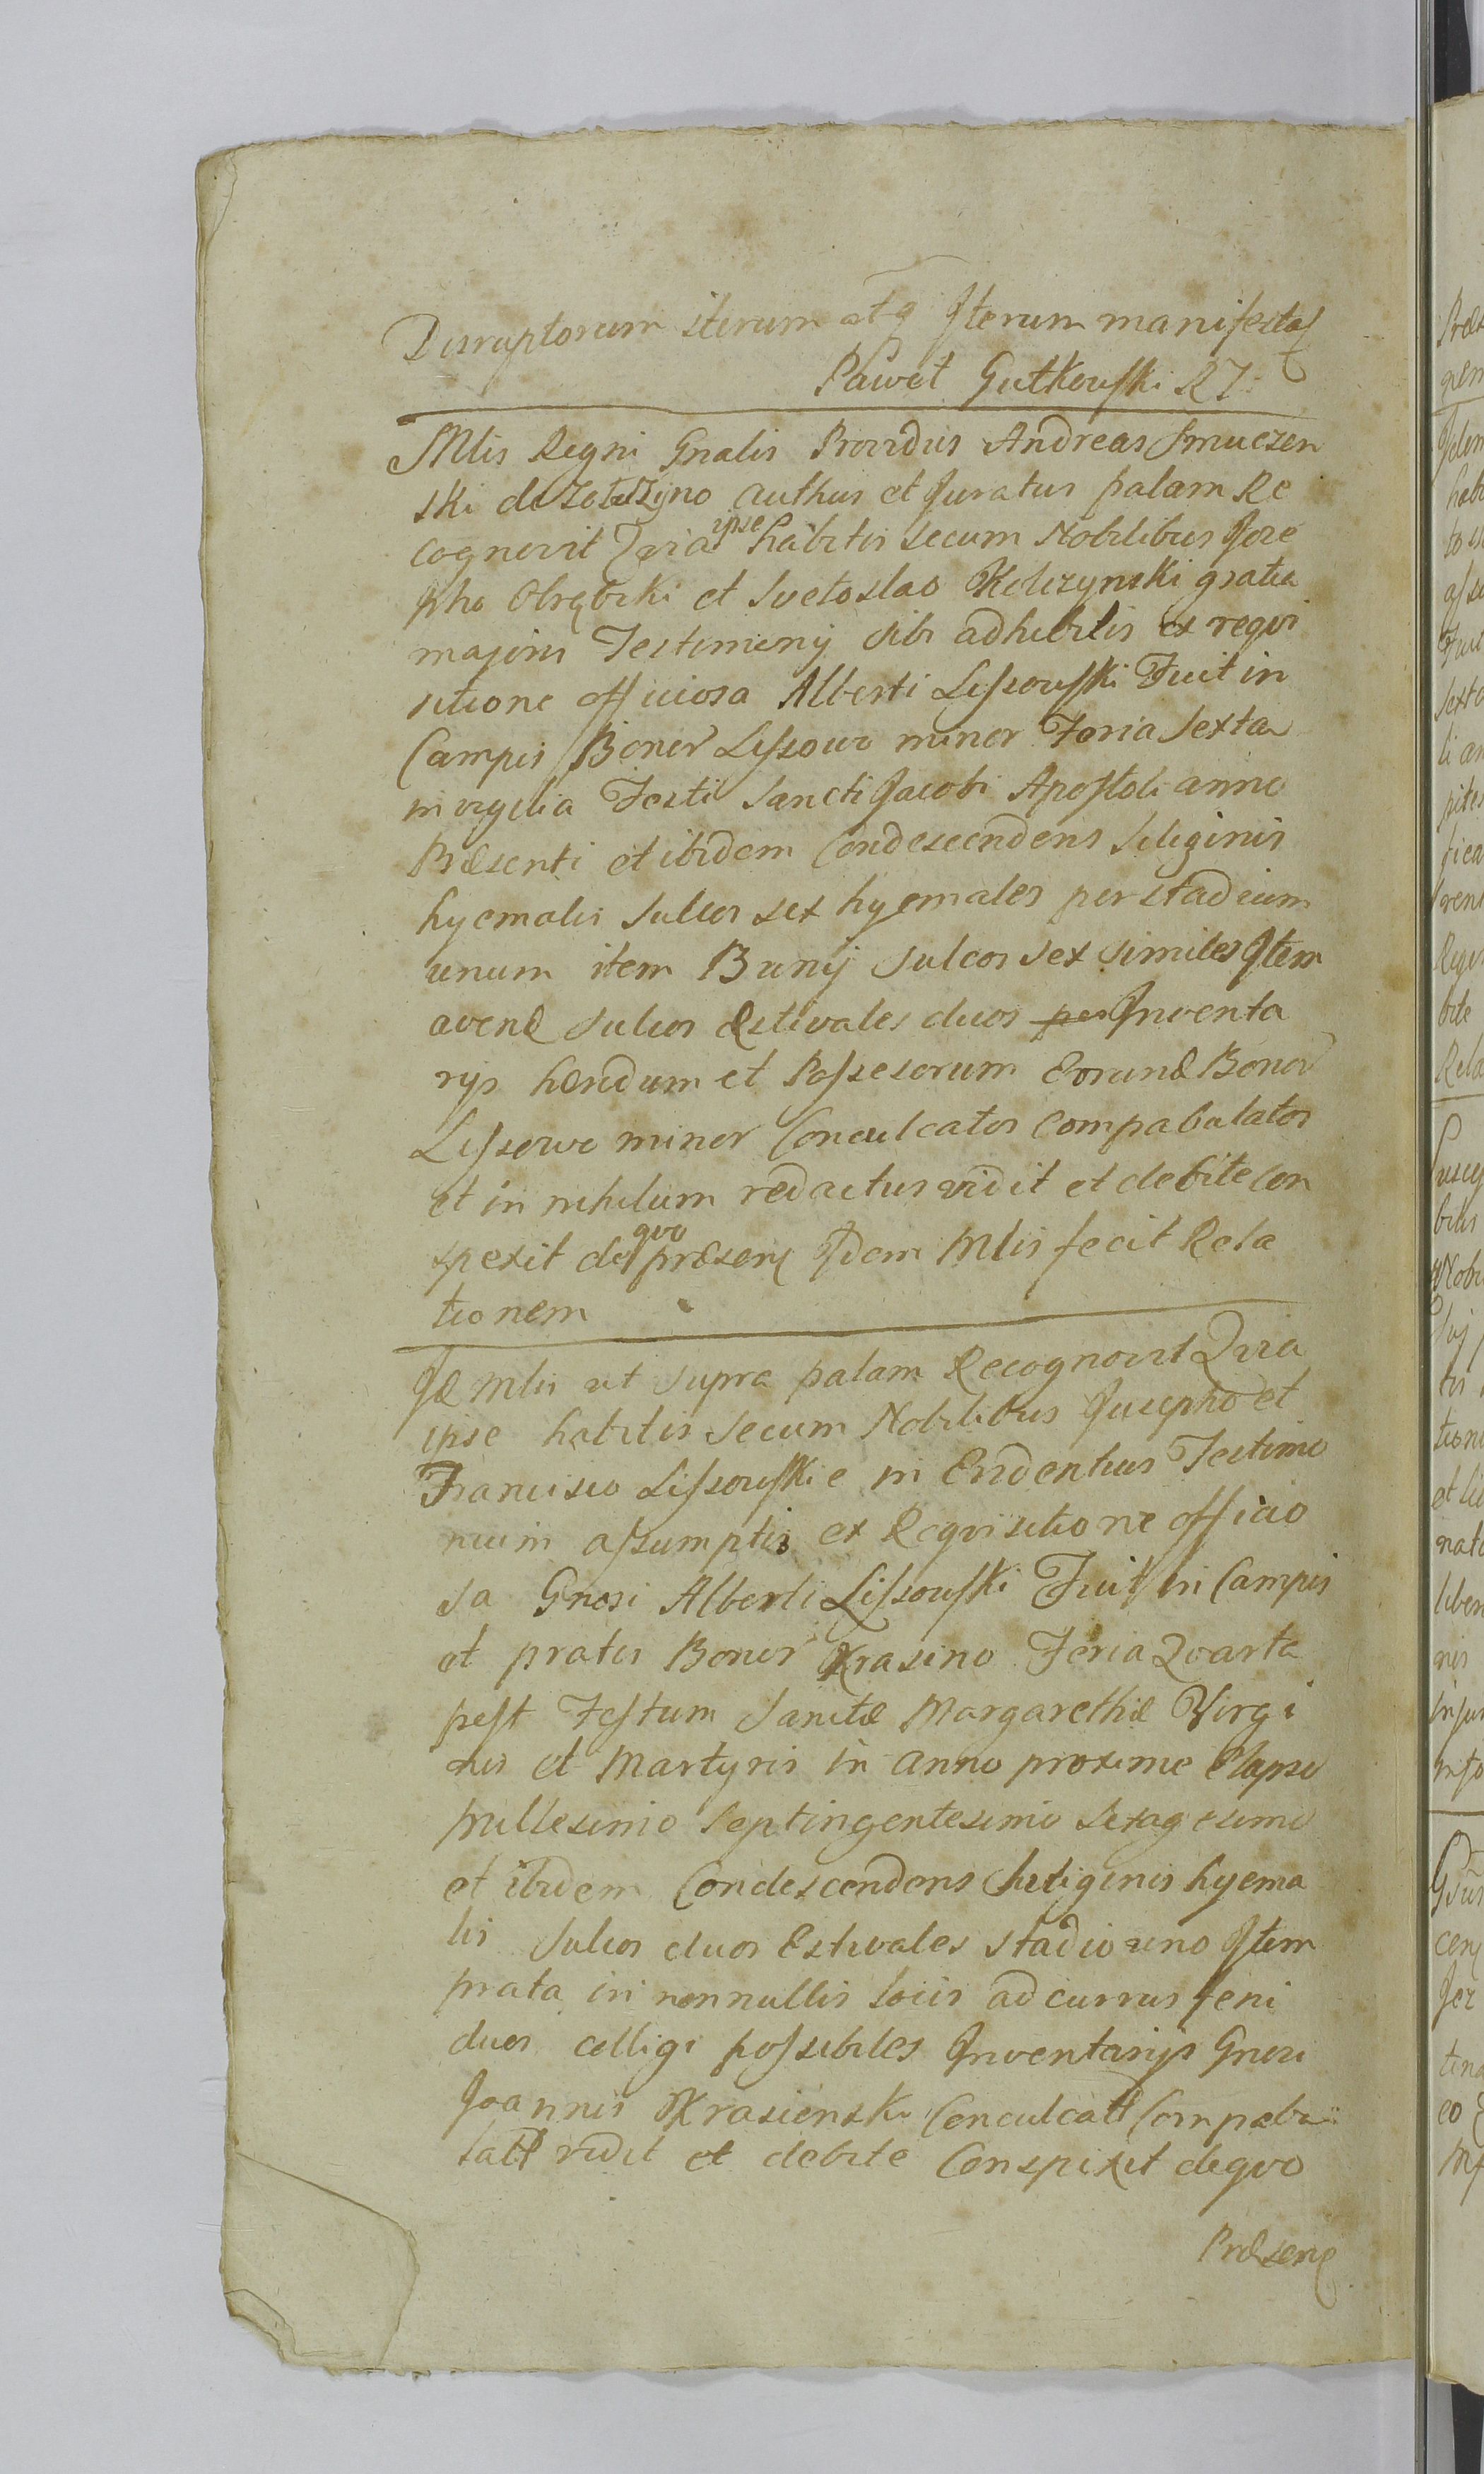 Disruptorum iterum atq Iterum manifestat
Paweł Gutkowski RT
Mlis Regni Gnalis Providus Andreas Smuczen
ski de authus et Juratus palam Re
cognovit Qvia ipse habitis secum Nobilibus Joze
pho Obrębski et Svetoslao Kolczynski gratia
majoris Testimonij sibi adhibitis ex reqvi
sitione officiosa Alberti Lissowski Fuit in
Campis Bonor Lissowo minor Feria Sexta
in vigilia Festi Sancti Jacobi Apostoli anno
Præsenti et ibidem Condescendens Siliginis
hyemalis Sulcos sex hyemales per stadium
unum item sulcos sex similes Item
avenæ sulcos æstivales duos per Inventa
rijs hærdum et Possesorum Eorund Bonor
Lissowo minor Conculcatos Compabulatos
et in nihilum redactus vidit et debite con
spexit de qvo præsens Idem Mlis fecit Rela
tionem
Id Mlis ut supra palam Recognovit Qvia
ipse habitis secum Nobilibus Jusepho et
Francisco Lissowskie in Evidentius Testimo
nium assumptis ex Reqvisitione officio
sa Gnosi Alberti Lissowski Fuit in Campis
et pratis Bonor Krasino Feria Qvarta
post Festum Sanctæ Margarethæ Virgi
nis et Martyris in anno proxime Elapso
millesimo Septingentesimo Sexagesimo
et ibidem Condescendens Siliginis hyema
lis Sulcos duos Estivales stadio uno Item
prata in nonnullis locis ad currus feni
duos colligi possibiles Inventarijs Gnosi
Joannis Krasienski Conculcatt Compabu
latt vidit et debite Conspexit deqvo
Præsens